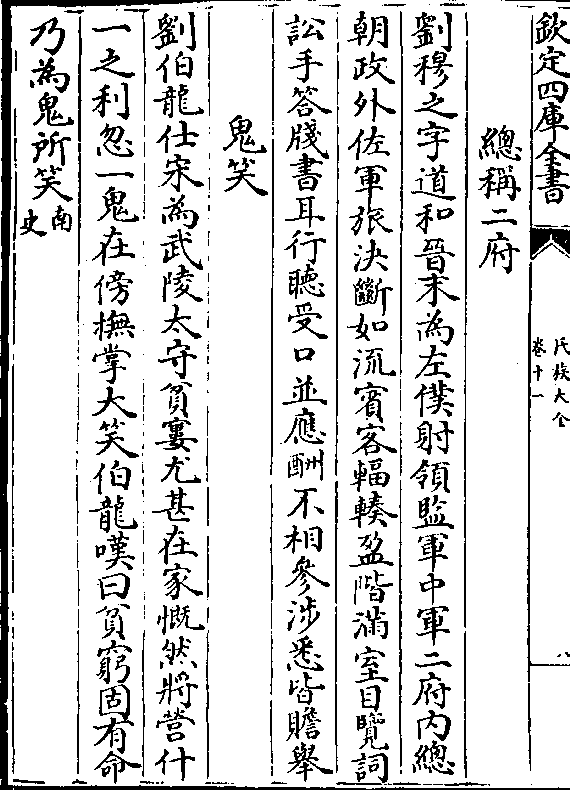 欽定四庫全書
氏族大全
卷十一
八
總稱二府
劉穆之字道和晉末為左僕射領監軍中軍二府内總
朝政外佐軍旅決斷如流賓客輻輳盈階滿室目覽詞
訟手答牋書耳行聽受口並應酬不相參涉悉皆贍舉
鬼笑
劉伯龍仕宋為武陵太守貧窶尤甚在家慨然將營什
一之利忽一鬼在傍撫掌大笑伯龍嘆曰貧窮固有命
乃為鬼所笑南史